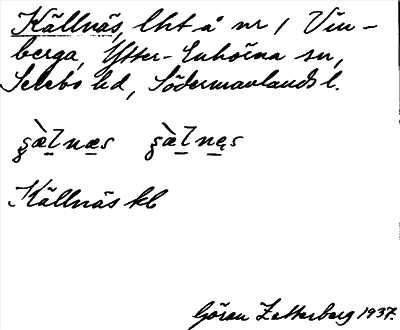 Källnäs, lht å nr 1 Vin-
berga, Ytter-Enhörna sn,
Selebo hd, Södermanlands l.
ʒæ̀lnæs ʒæ̀lnęs
Källnäs kl
Göran Zetterberg 1937.